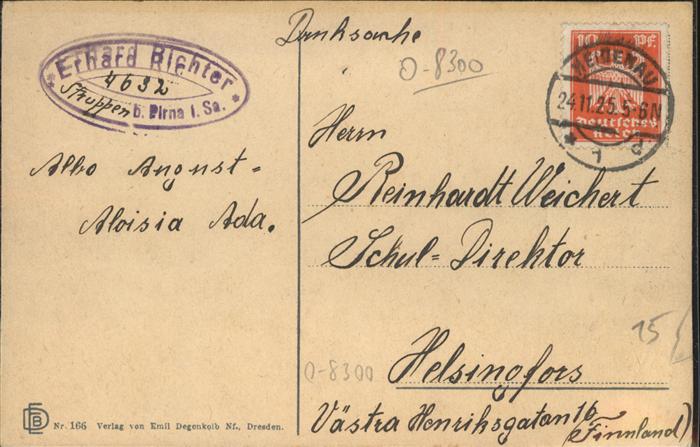 Erhard Richter
4632
Struppen b. Pirna i. Sa.
Albo August-
Aloisia Ada.
Nr. 166 Verlag von Emil Degenkolb Nf., Dresden.
Drucksache
O-8300
10 Pf.
HEIDENAU
24.11.25. 5-6N
* 1 d
Deutsches
Reich
Herrn
Reinhardt Weichert
Schul=Direktor
Helsingfors
Västra Henriksgatan 16
(Finnland)
15
O-8300